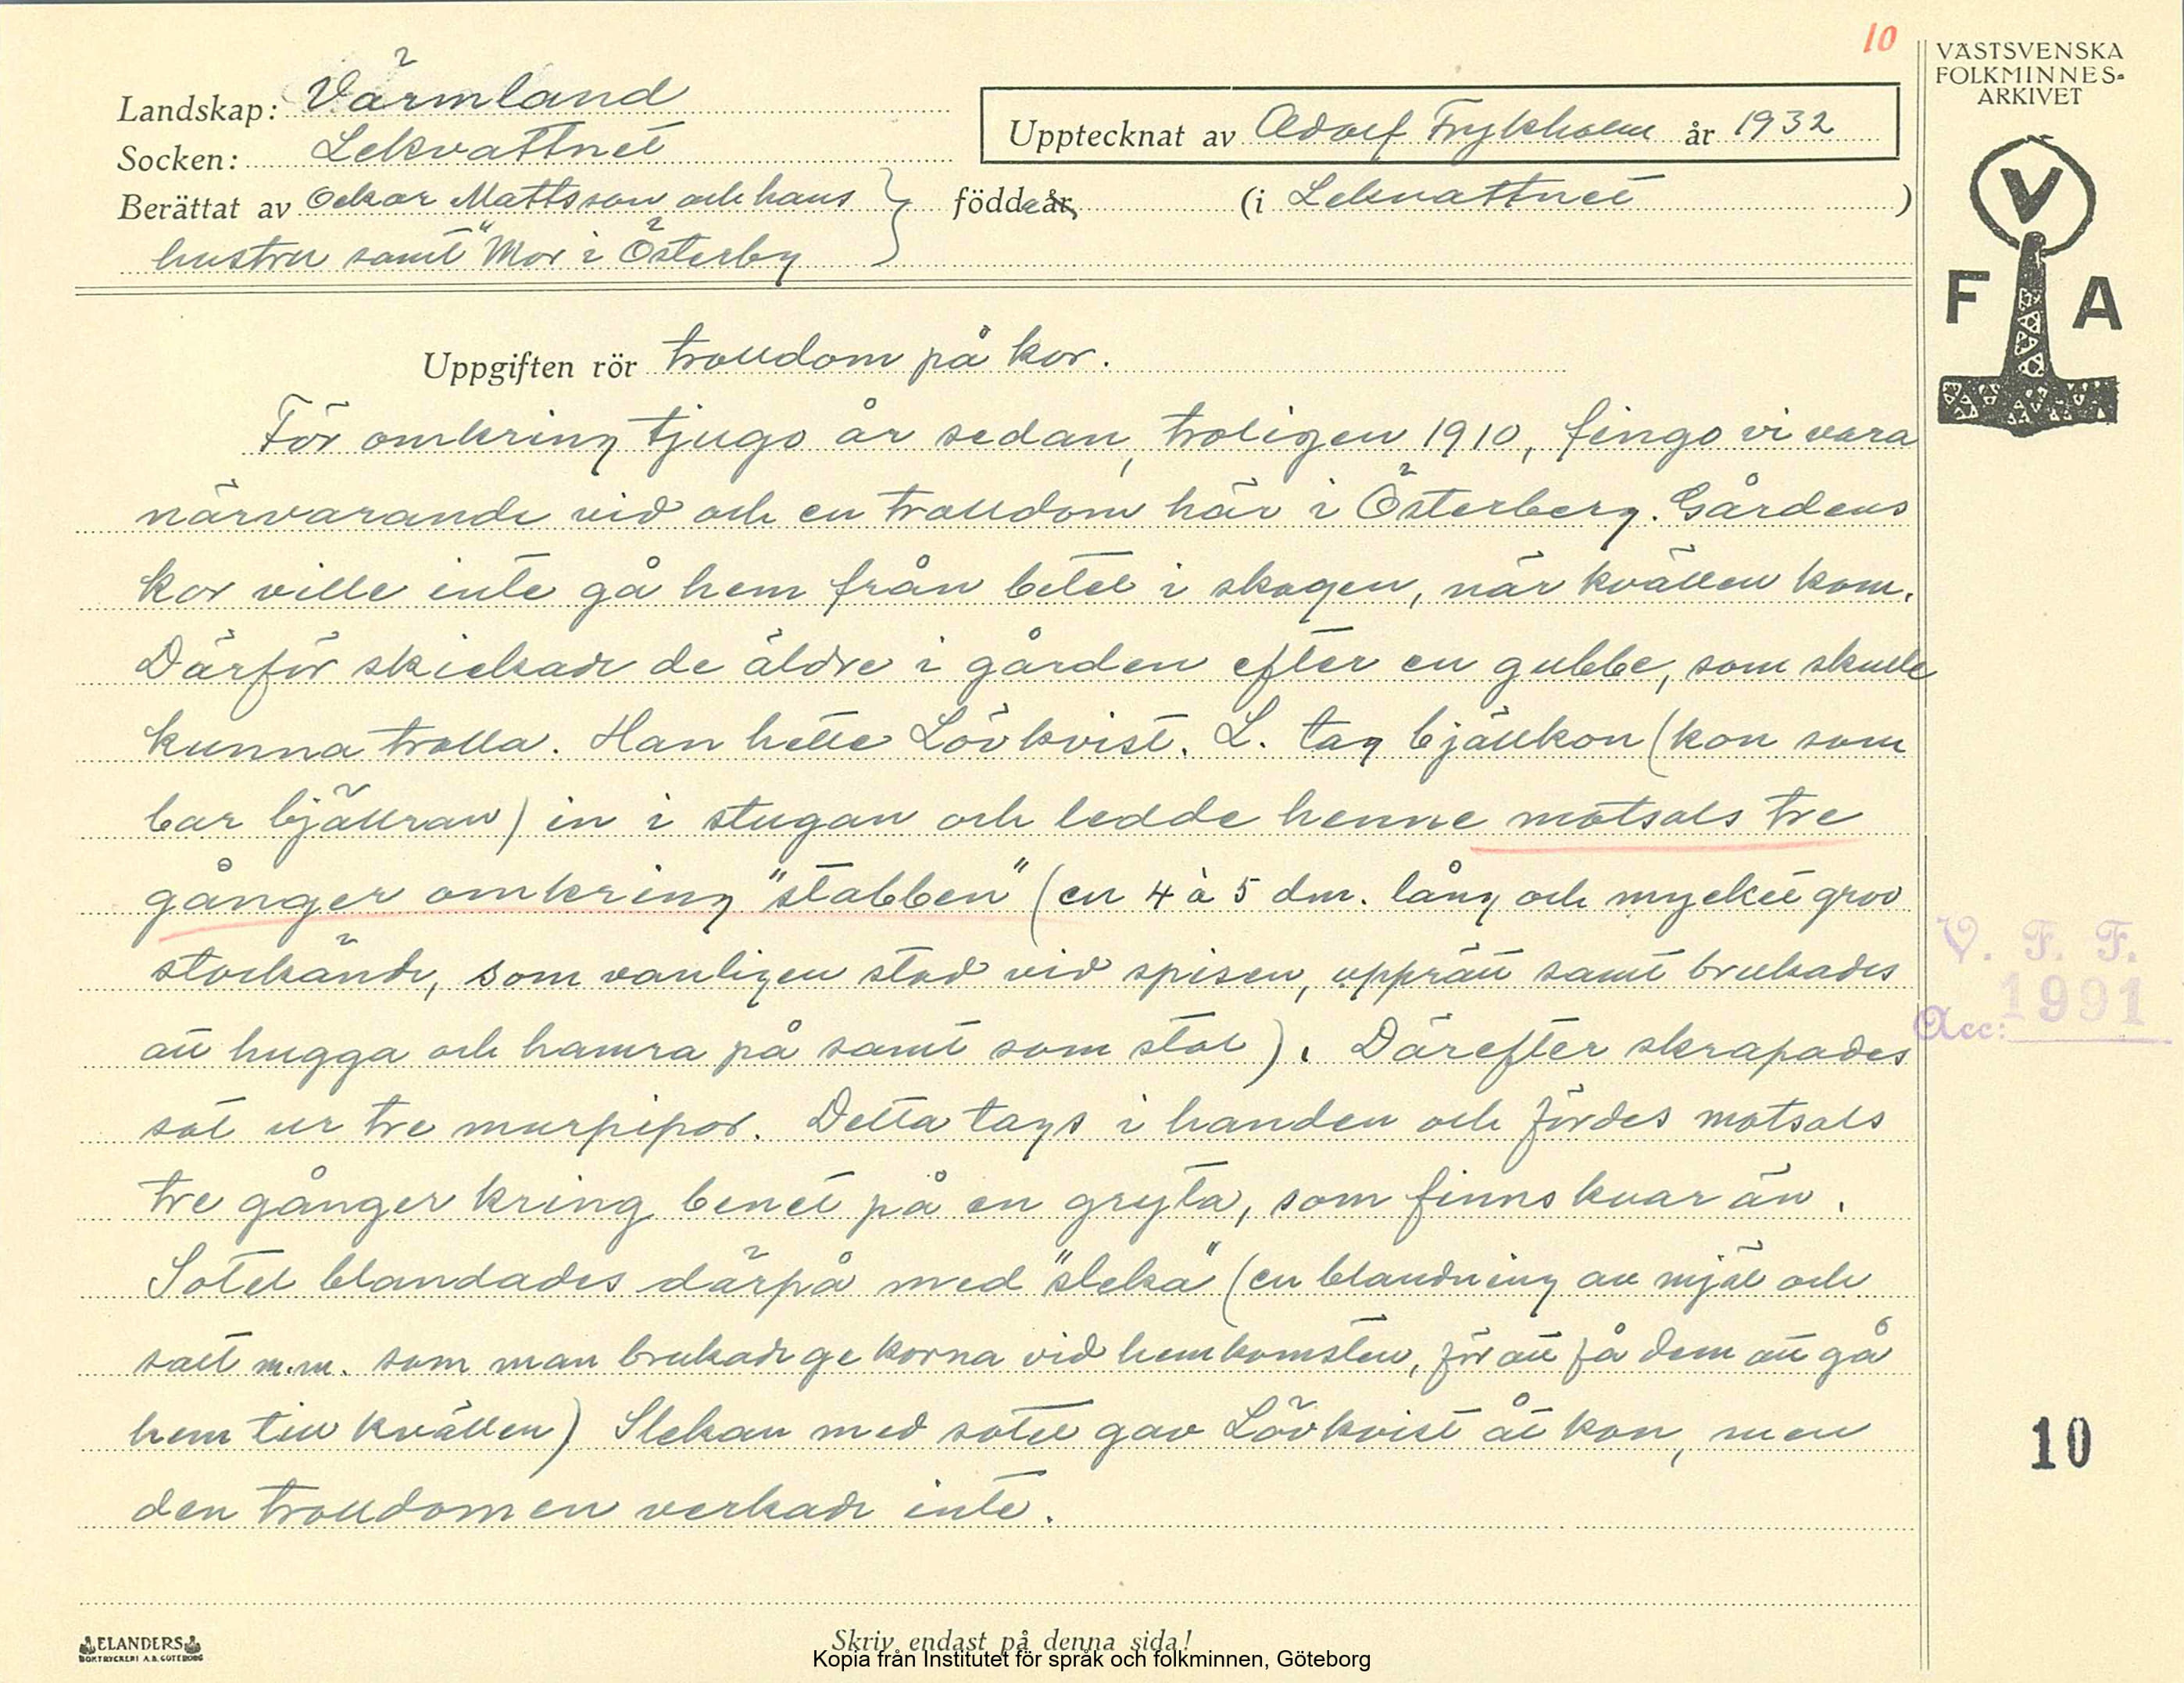 10
VÄSTSVENSKA
FOLKMINNES-
ARKIVET
Landskap: Värmland
Socken: Lekvattnet
Upptecknat av Adolf Frykholm år 1932
Berättat av Oskar Mattsson och hans
hustru samt "Mor i Österby
födda år, (i Lekvattnet )
V
F A
Uppgiften rör trolldom på kor.
För omkring tjugo år sedan, troligen 1910, fingo vi vara
närvarande vid och en trolldom här i Österberg. Gårdens
kor ville inte gå hem från betet i skogen, när kvällen kom.
Därför skickade de äldre i gården efter en gubbe, som skulle
kunna trolla. Han hette Lövkvist. L. tog bjällkon (kon som
bar bjällran) in i stugan och ledde henne motsols tre
gånger omkring "stabben" (en 4 à 5 dm. lång och mycket grov
stockände, som vanligen stod vid spisen, upprätt samt brukades
att hugga och hamra på samt som stol). Därefter skrapades
sot ur tre murpipor. Detta togs i handen och fördes motsols
tre gånger kring benet på en gryta, som finns kvar än.
Sotet blandades därpå med "sleka" (en blandning av mjöl och
salt m.m. som man brukade ge korna vid hemkomsten, för att få dem att gå
hem till kvällen) Slekan med sotet gav Lövkvist åt kon, men
den trolldomen verkade inte.
V. F. F.
Acc: 1991
10
ELANDERS
BOKTRYCKERI A.B. GÖTEBORG
Skriv endast på denna sida!
Kopia från Institutet för språk och folkminnen, Göteborg